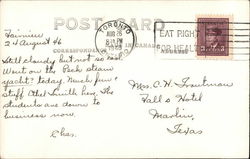 POST CARD
CORRESPONDENCE
IN CANADA
ADDRESS
TORONTO
AUG 26
8 PM
1946
EAT RIGHT
FOR HEALTH
3 3
24 August 46
Still cloudy but not so cool.
Went on the Peck steam
yacht? today. Much fun &
stuff. Chas Smith here. The
students are down to
business now.
Chas.
Mrs. C. H. Trautman
Falls Hotel
Marlin,
Texas